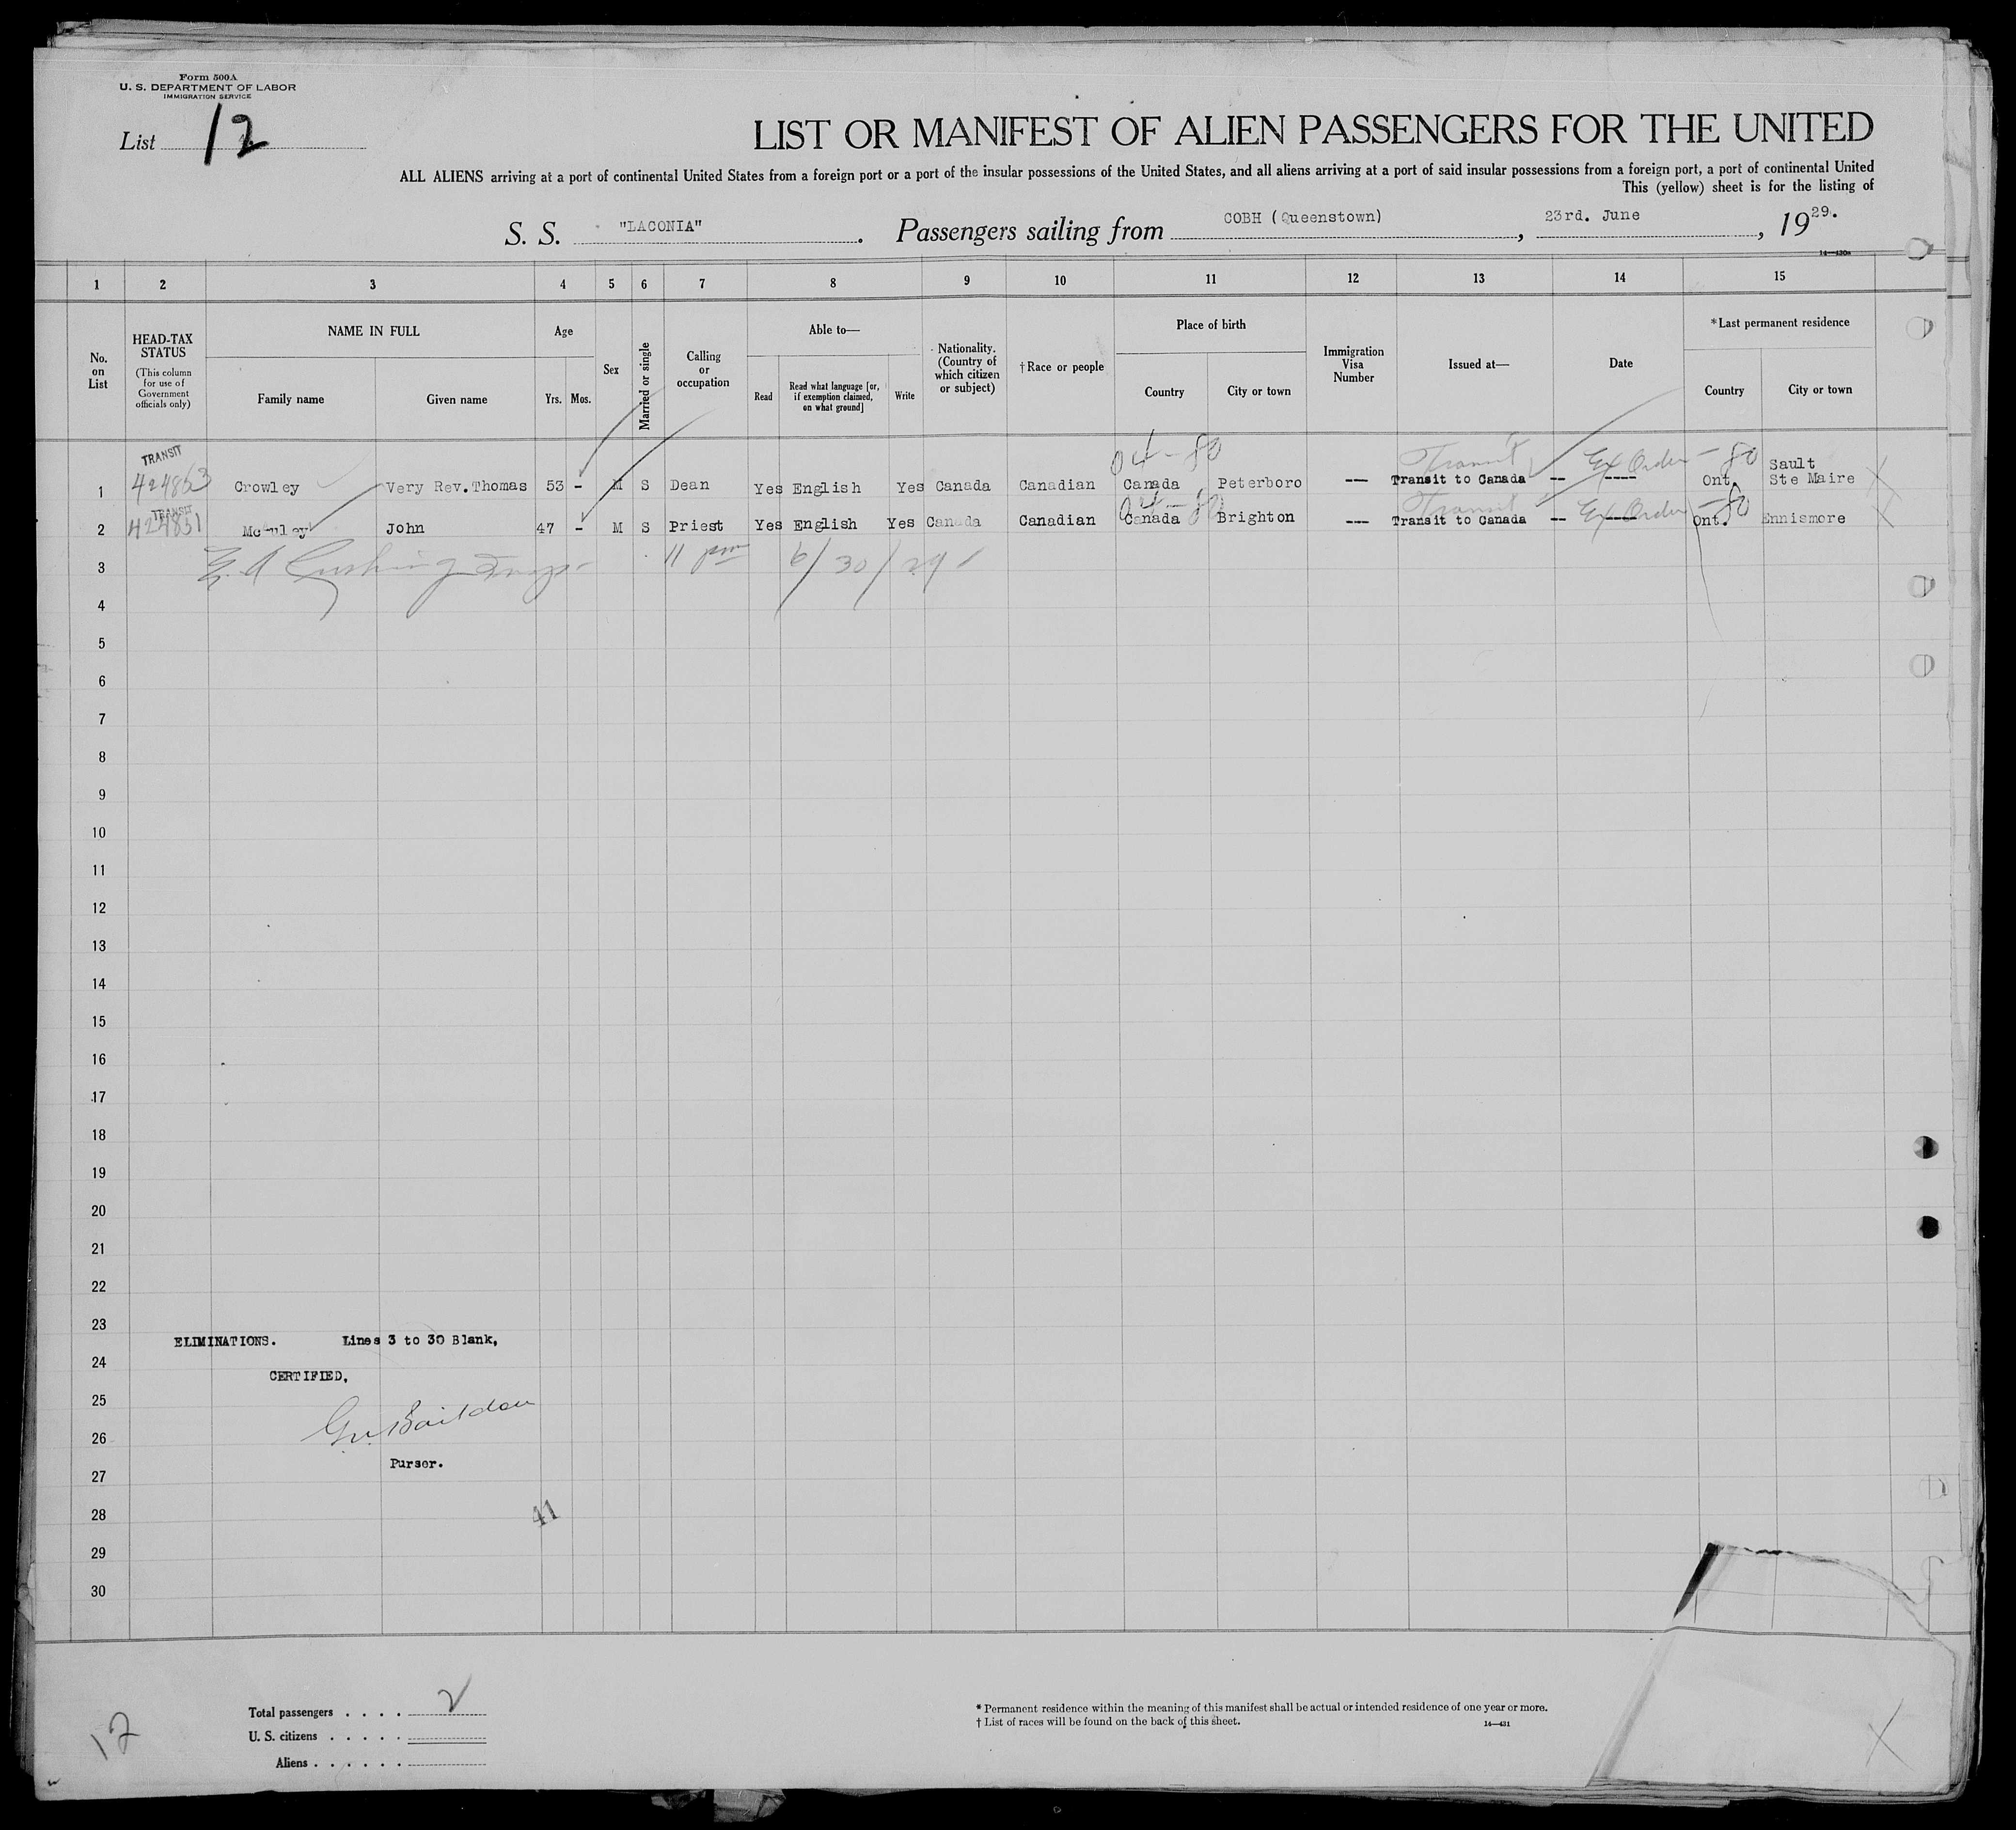 Form 500A
U. S. DEPARTMENT OF LABOR
IMMIGRATION SERVICE
List 12
LIST OR MANIFEST OF ALIEN PASSENGERS FOR THE UNITED
ALL ALIENS arriving at a port of continental United States from a foreign port or a port of the insular possessions of the United States, and all aliens arriving at a port of said insular possessions from a foreign port, a port of continental United
This (yellow) sheet is for the listing of
S. S. "LACONIA". Passengers sailing from COBH (Queenstown), 23rd. June, 1929.
14—430a
1 2 3 4 5 6 7 8 9 10 11 12 13 14 15
No. on List
HEAD-TAX STATUS
(This column for use of Government officials only)
NAME IN FULL
Family name
Given name
Age
Yrs. Mos.
Sex
Married or single
Calling or occupation
Able to—
Read
Read what language [or, if exemption claimed, on what ground]
Write
Nationality. (Country of which citizen or subject)
†Race or people
Place of birth
Country
City or town
Immigration Visa Number
Issued at—
Date
*Last permanent residence
Country
City or town
TRANSIT 04-80 Transit Ex Order - 80
1 424853 Crowley Very Rev. Thomas 53 - M S Dean Yes English Yes Canada Canadian Canada Peterboro --- Transit to Canada -- ---- Ont. Sault Ste Maire
TRANSIT 04-80 Transit Ex Order - 80
2 424851 John 47 - M S Priest Yes English Yes Canada Canadian Canada Brighton --- Transit to Canada -- Ont. Ennismore
3 11 pm 6/30/29
4
5
6
7
8
9
10
11
12
13
14
15
16
17
18
19
20
21
22
23
ELIMINATIONS. Lines 3 to 30 Blank,
24
CERTIFIED,
25
26
Purser.
27
28
41
29
30
Total passengers . . . . 2
U. S. citizens . . . . .
Aliens . . . . . .
12
* Permanent residence within the meaning of this manifest shall be actual or intended residence of one year or more.
† List of races will be found on the back of this sheet.
14—431